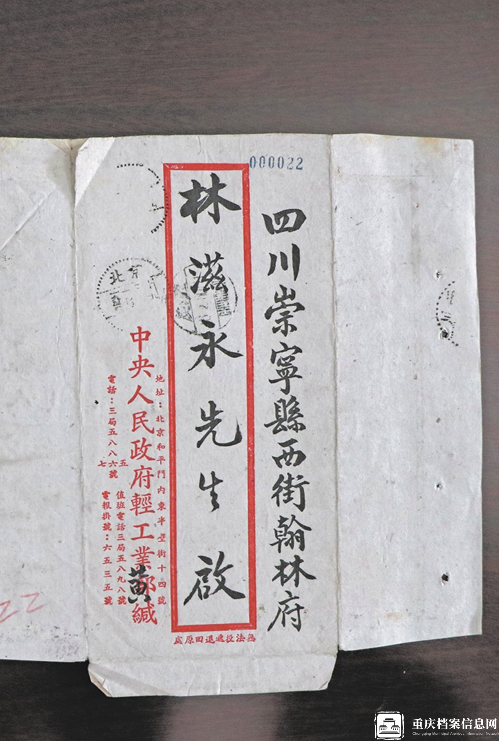 000022
四川崇寧縣西街翰林府
林滋永先生啟
地址：北京和平門內東半壁街十四號
中央人民政府輕工業部
黃
緘
值班電話三局五八九八號
電報掛號：六五三五號
電話：三局五八八六五七號
無法投遞退回原處
北京
22
重庆档案信息网